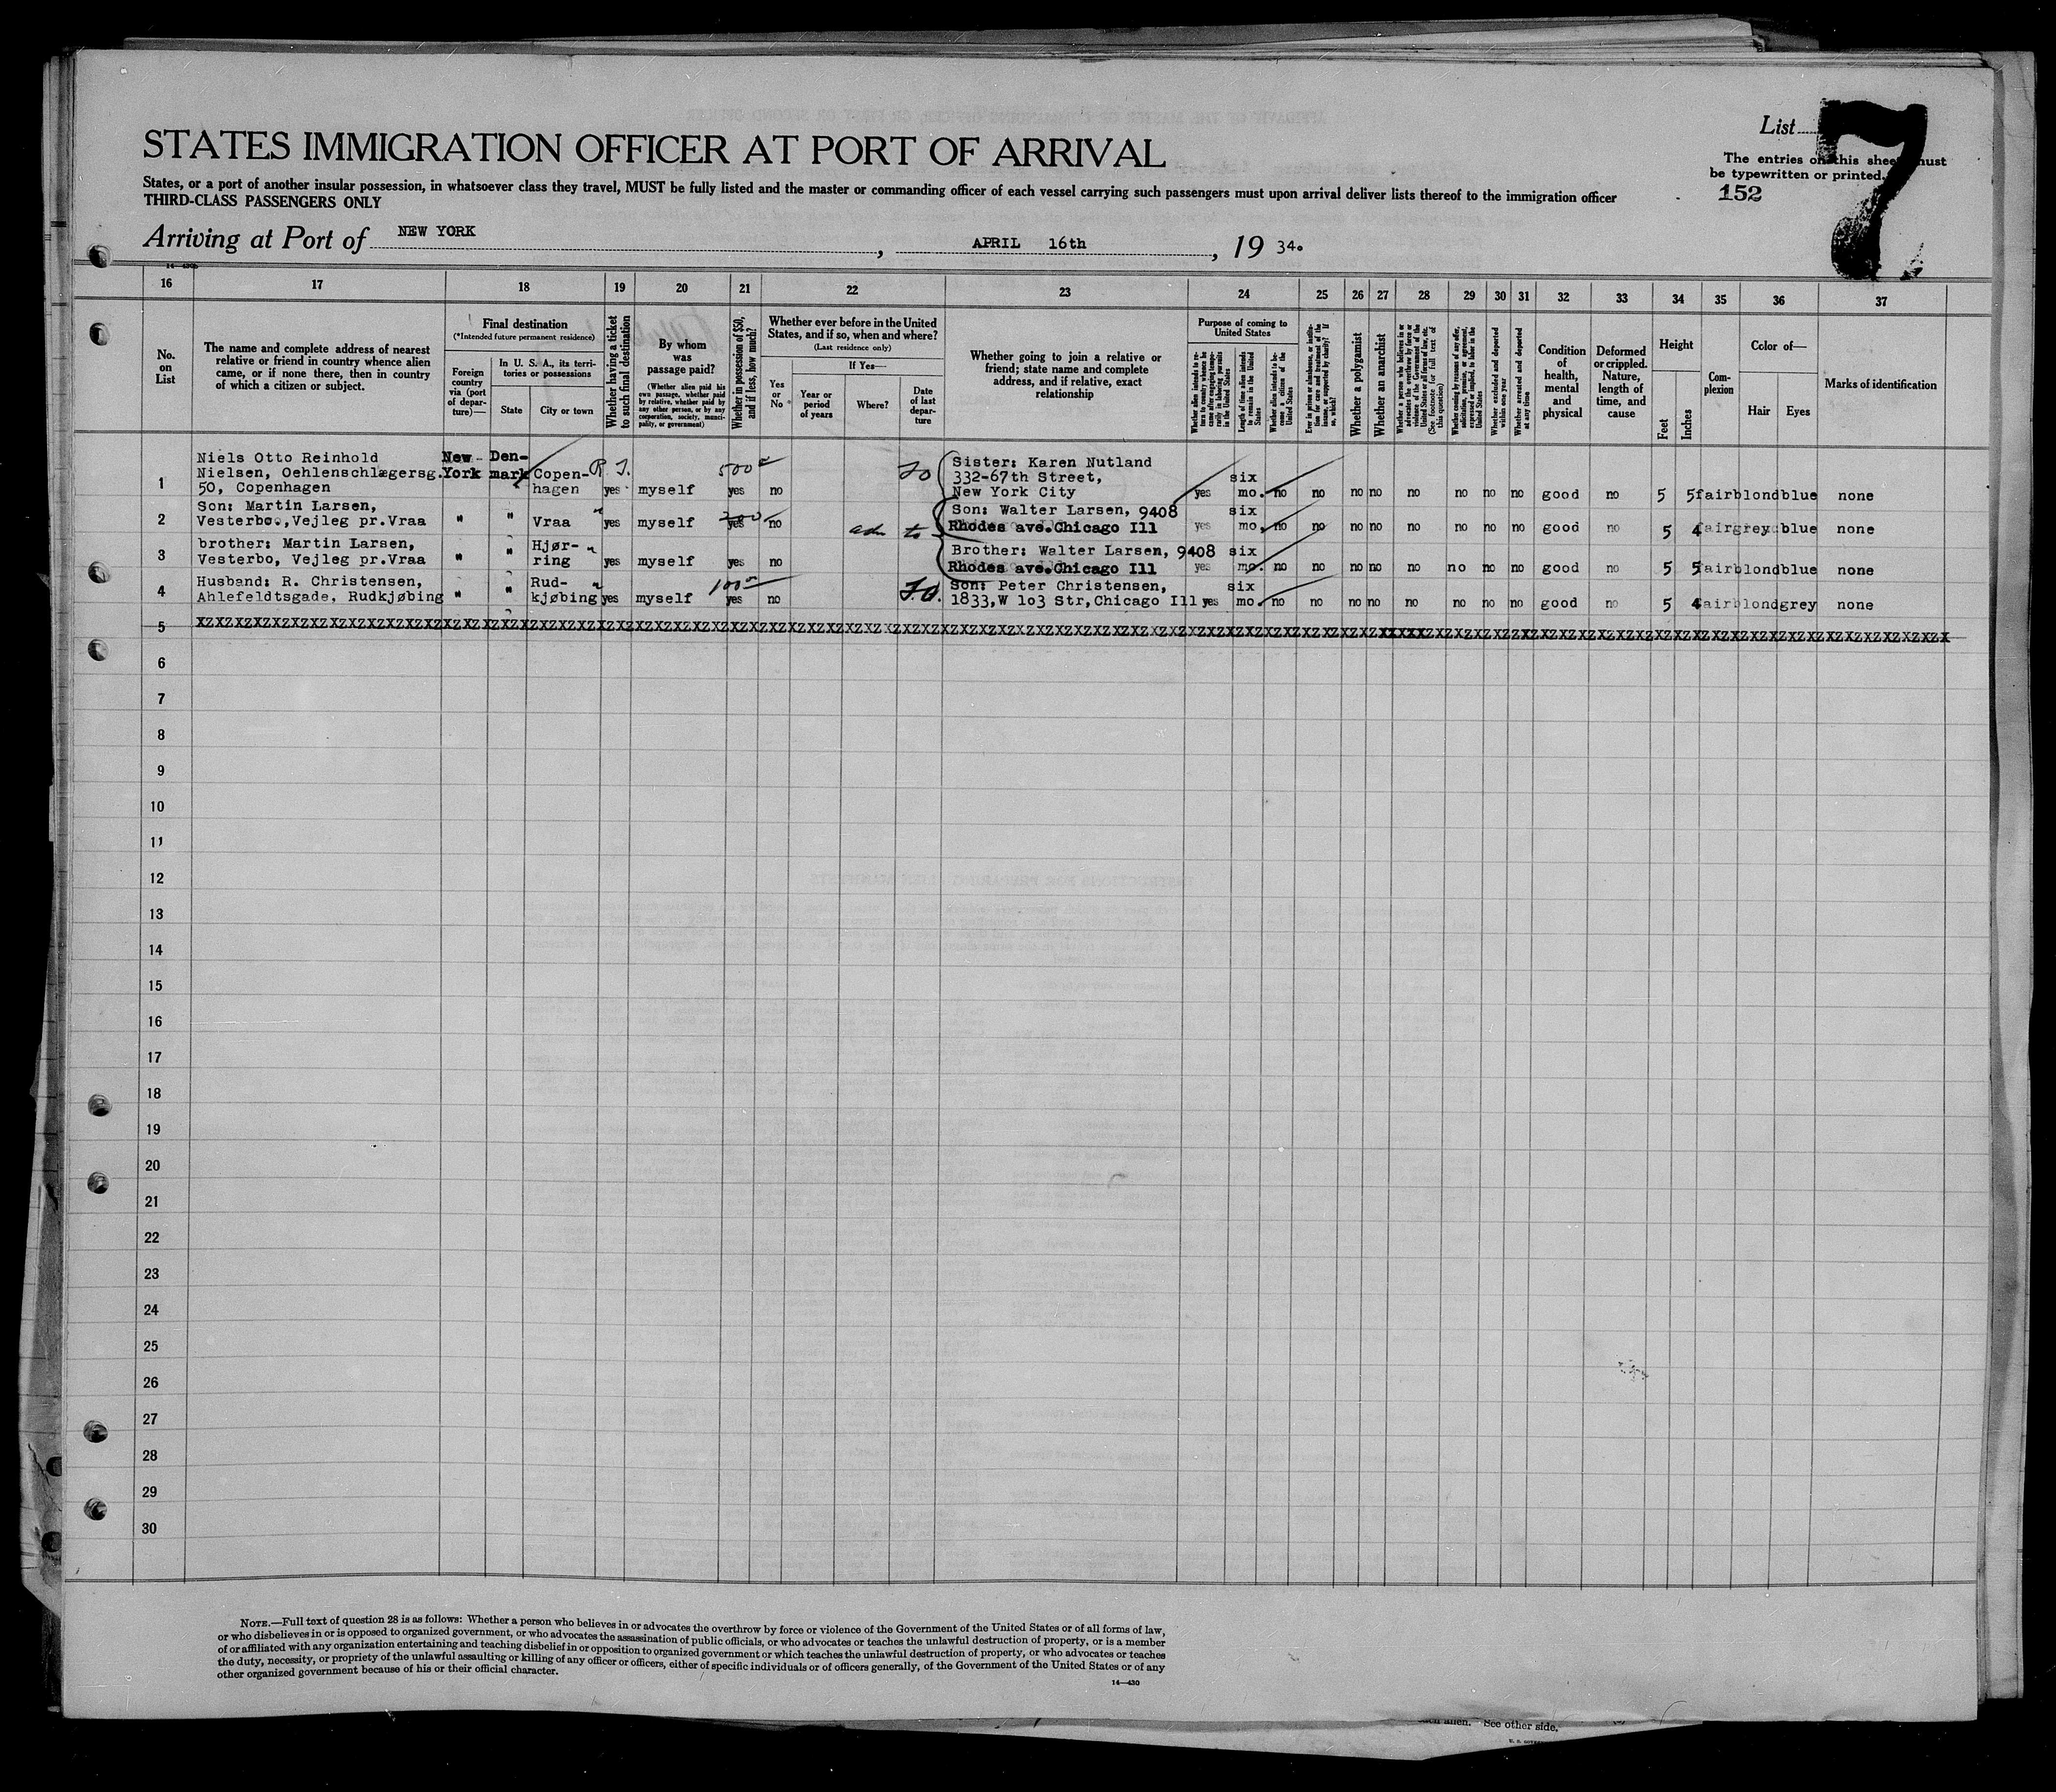 List 7
STATES IMMIGRATION OFFICER AT PORT OF ARRIVAL
The entries on this sheet must
be typewritten or printed.
States, or a port of another insular possession, in whatsoever class they travel, MUST be fully listed and the master or commanding officer of each vessel carrying such passengers must upon arrival deliver lists thereof to the immigration officer
THIRD-CLASS PASSENGERS ONLY
152
Arriving at Port of NEW YORK, APRIL 16th, 19 34.
16 17 18 19 20 21 22 23 24 25 26 27 28 29 30 31 32 33 34 35 36 37
No. on List
The name and complete address of nearest
relative or friend in country whence alien
came, or if none there, then in country
of which a citizen or subject.
Final destination
(*Intended future permanent residence)
Foreign country via (port of departure)—
In U. S. A., its territories or possessions
State
City or town
Whether having a ticket to such final destination
By whom was passage paid?
(Whether alien paid his own passage, whether paid by relative, whether paid by any other person, or by any corporation, society, municipality, or government)
Whether in possession of $50, and if less, how much?
Whether ever before in the United
States, and if so, when and where?
(Last residence only)
Yes or No
If Yes—
Year or period of years
Where?
Date of last departure
Whether going to join a relative or
friend; state name and complete
address, and if relative, exact
relationship
Purpose of coming to United States
Length of time alien intends to remain in the United States
Whether alien intends to become a citizen of the United States
Whether a polygamist
Whether an anarchist
Whether excluded and deported within one year
Whether arrested and deported at any time
Condition of health, mental and physical
Deformed or crippled. Nature, length of time, and cause
Height
Feet
Inches
Complexion
Color of—
Hair
Eyes
Marks of identification
1 Niels Otto Reinhold Nielsen, Oehlenschlægersg. 50, Copenhagen New York Denmark Copenhagen R.T. yes myself 500 yes no TO Sister: Karen Nutland 332-67th Street, New York City yes six mo. no no no no no no no no good no 5 5 fair blond blue none
2 Son: Martin Larsen, Vesterbo.,Vejleg pr.Vraa " " Vraa " yes myself 200 yes no Son: Walter Larsen, 9408 Rhodes ave.Chicago Ill yes six mo. no no no no no no no no good no 5 4 fair grey blue none
3 brother: Martin Larsen, Vesterbo, Vejleg pr.Vraa " " Hjørring " yes myself yes no Brother: Walter Larsen, 9408 Rhodes ave.Chicago Ill yes six mo. no no no no no no no no good no 5 5 fair blond blue none
4 Husband: R. Christensen, Ahlefeldtsgade, Rudkjøbing " " Rudkjøbing " yes myself 100 yes no Son: Peter Christensen, 1833,W 1o3 Str,Chicago Ill yes six mo. no no no no no no no no good no 5 4 fair blond grey none
5
6
7
8
9
10
11
12
13
14
15
16
17
18
19
20
21
22
23
24
25
26
27
28
29
30
NOTE.—Full text of question 28 is as follows: Whether a person who believes in or advocates the overthrow by force or violence of the Government of the United States or of all forms of law,
or who disbelieves in or is opposed to organized government, or who advocates the assassination of public officials, or who advocates or teaches the unlawful destruction of property, or is a member
of or affiliated with any organization entertaining and teaching disbelief in or opposition to organized government or which teaches the unlawful destruction of property, or who advocates or teaches
the duty, necessity, or propriety of the unlawful assaulting or killing of any officer or officers, either of specific individuals or of officers generally, of the Government of the United States or of any
other organized government because of his or their official character.
14—430
alien. See other side.